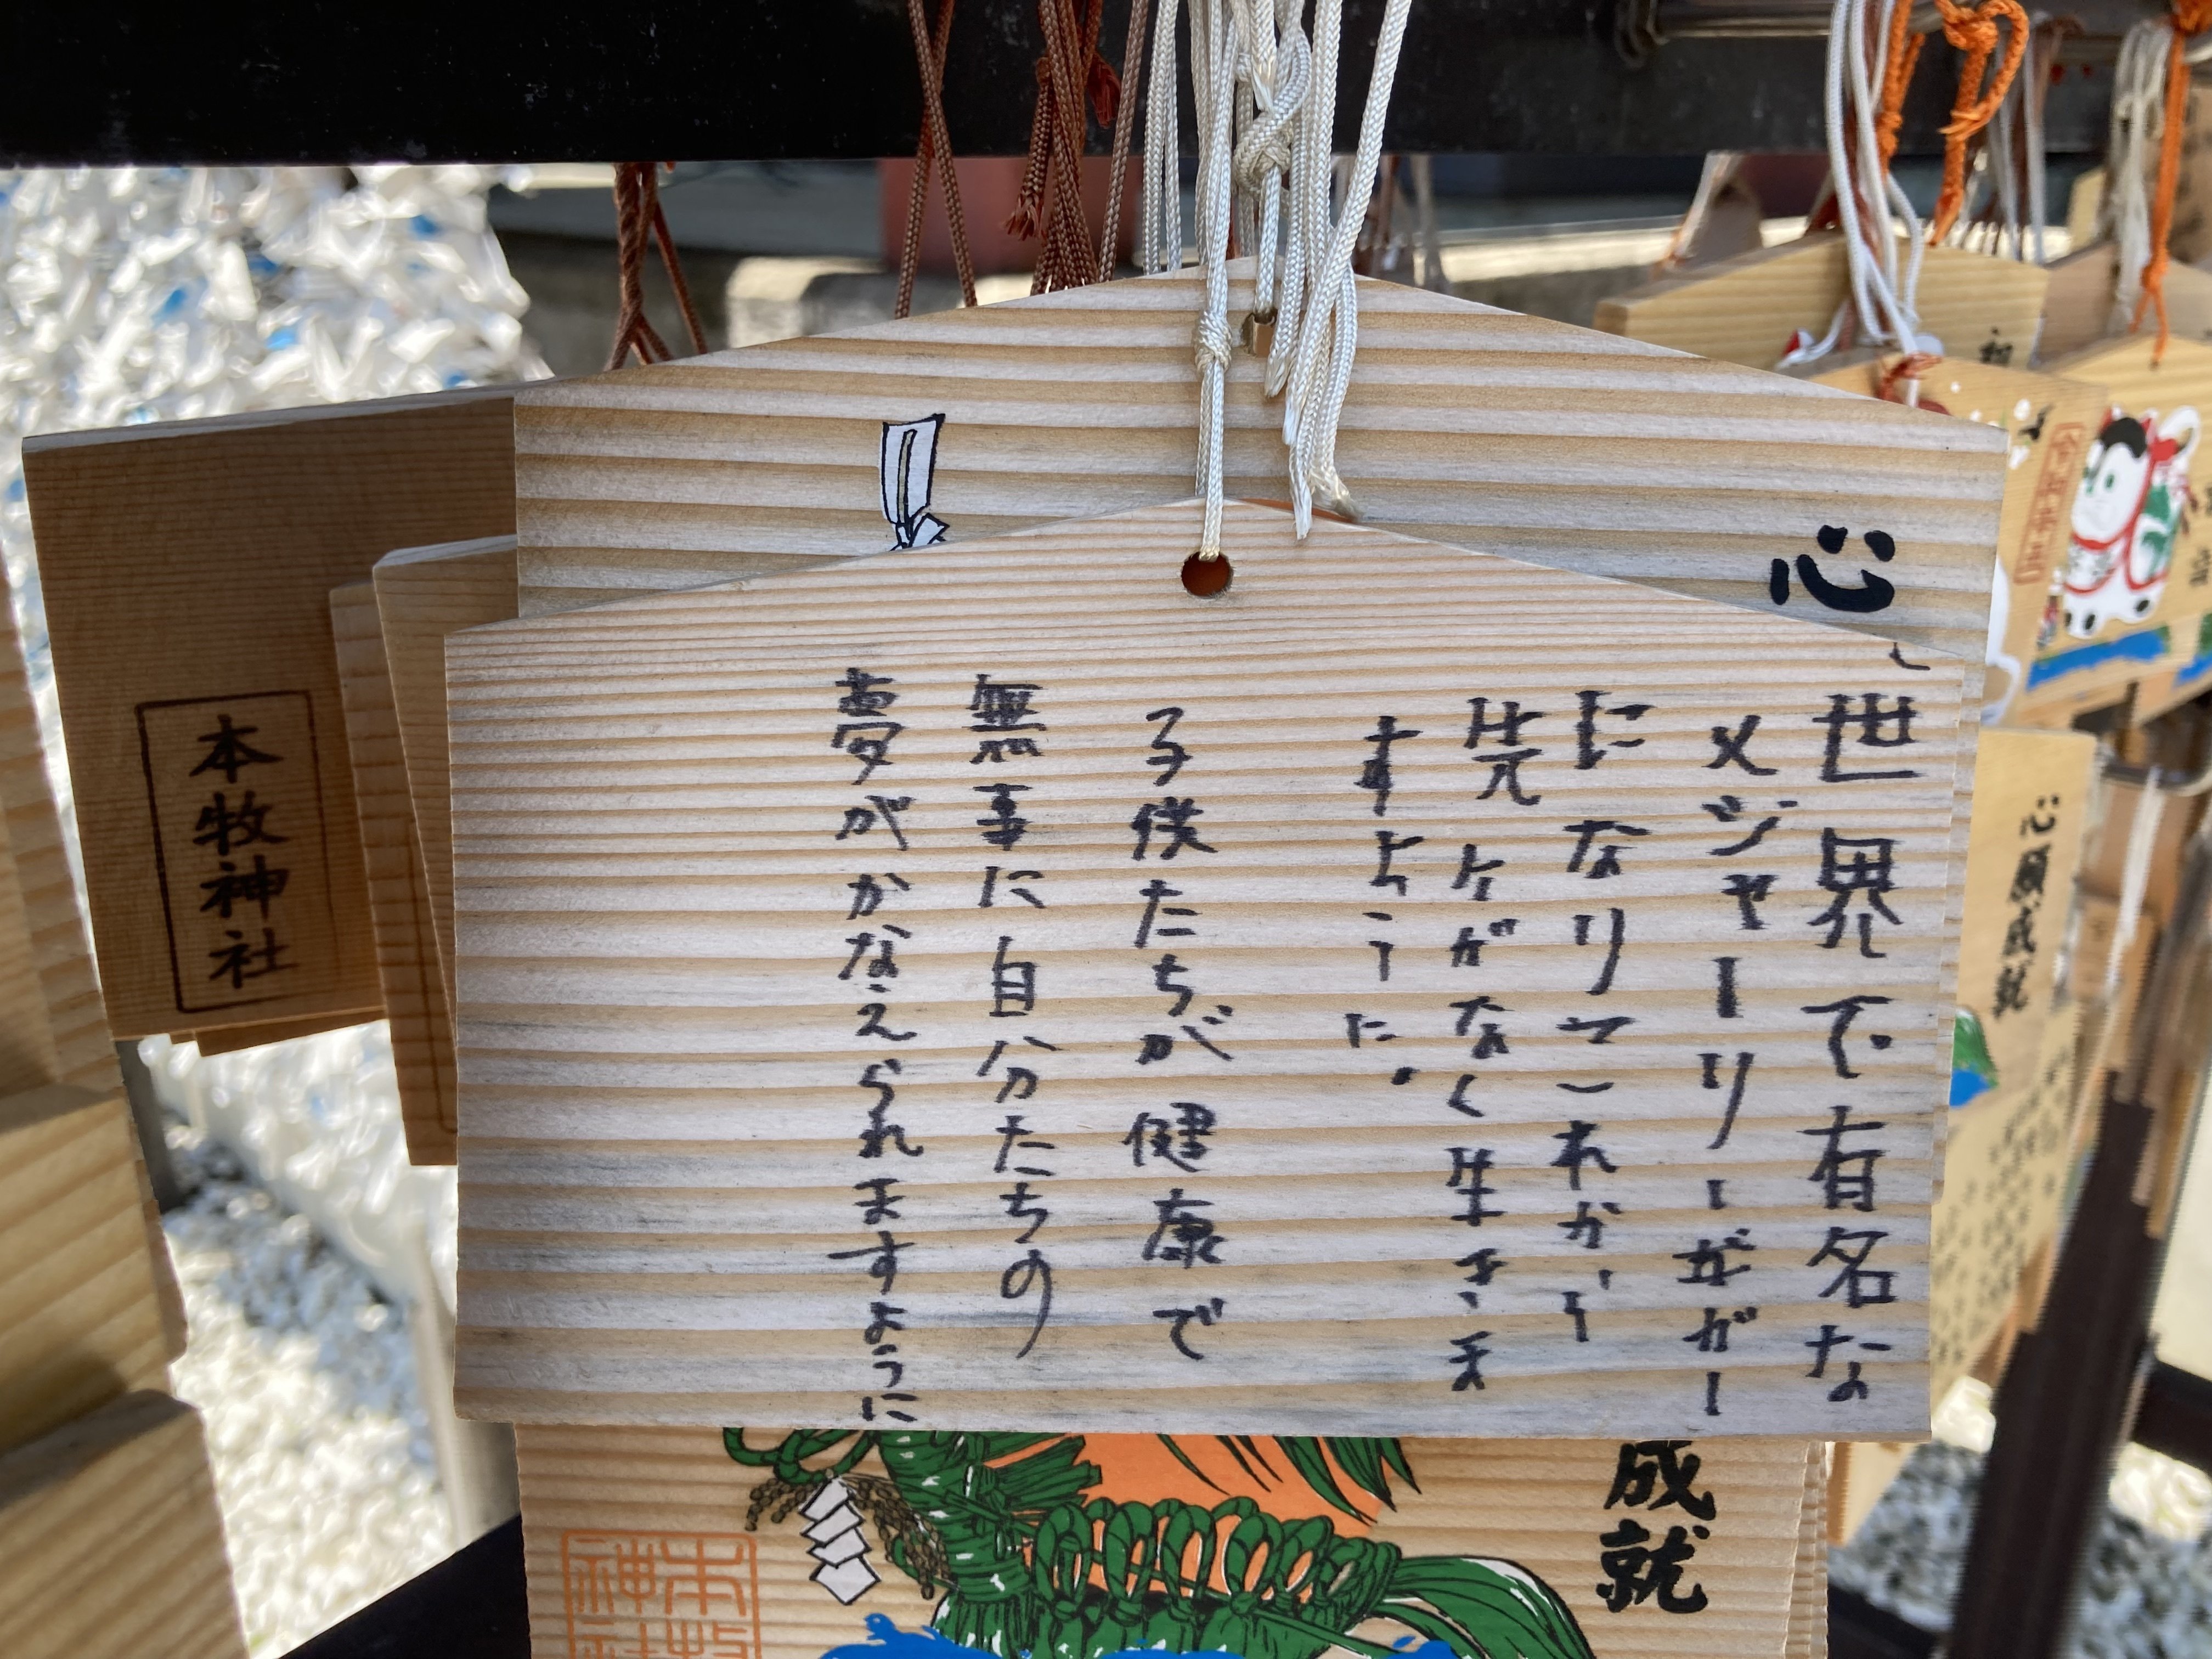 心
世界で有名な
メジャーリーガー
になりてこれから
先ケがなく生きま
すように。
子供たちが 健康で
無事に 自分たちの
夢がかなえられますように
成就
本牧神社
心願成就